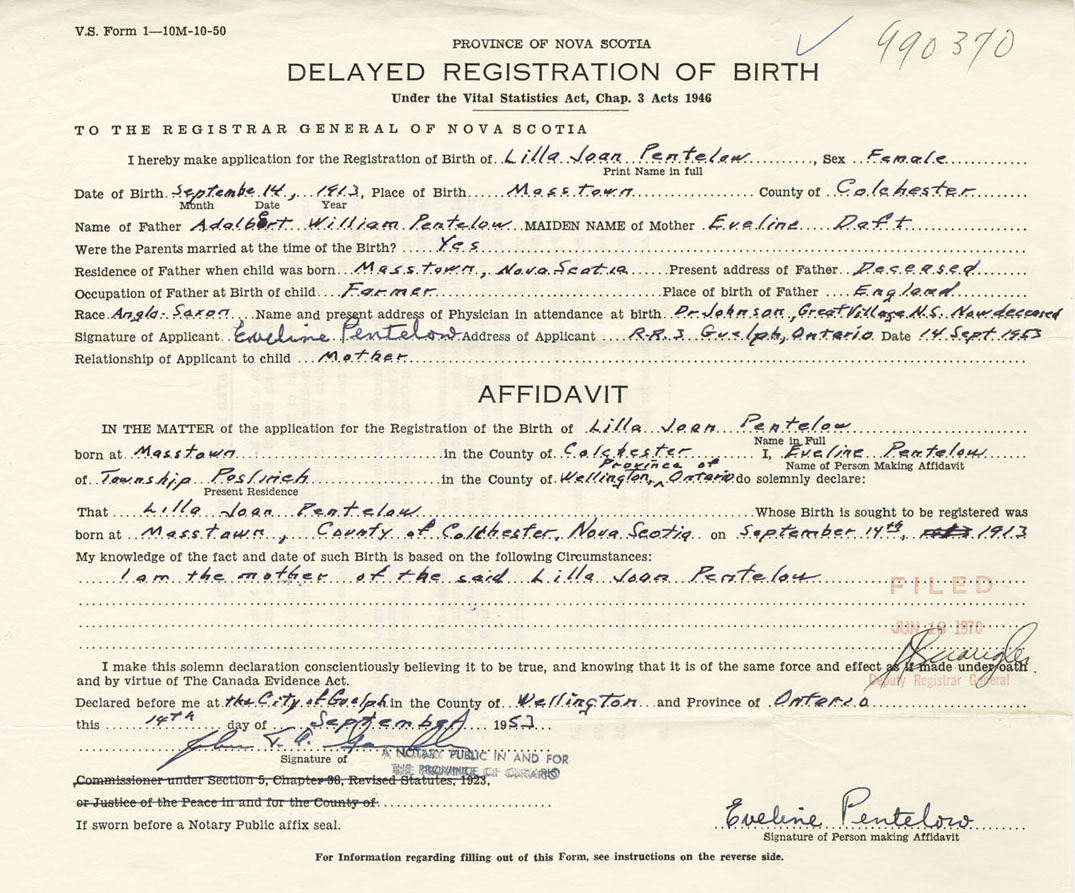 V.S. Form 1—10M-10-50
990370
PROVINCE OF NOVA SCOTIA
DELAYED REGISTRATION OF BIRTH
Under the Vital Statistics Act, Chap. 3 Acts 1946
TO THE REGISTRAR GENERAL OF NOVA SCOTIA
I hereby make application for the Registration of Birth of Lilla Joan Pentelow, Sex Female
Print Name in full
Date of Birth September 14, 1913, Place of Birth Masstown County of Colchester
Month Date Year
Name of Father Adalbert William Pentelow MAIDEN NAME of Mother Eveline Daft
Were the Parents married at the time of the Birth? Yes
Residence of Father when child was born Masstown, Nova Scotia Present address of Father Deceased
Occupation of Father at Birth of child Farmer Place of birth of Father England
Race Anglo-Saxon Name and present address of Physician in attendance at birth Dr. Johnson, Great Village N.S. Now deceased
Signature of Applicant Eveline Pentelow Address of Applicant R.R.3 Guelph, Ontario Date 14 Sept 1953
Relationship of Applicant to child Mother
AFFIDAVIT
IN THE MATTER of the application for the Registration of the Birth of Lilla Joan Pentelow
Name in Full
born at Masstown in the County of Colchester I, Eveline Pentelow
Province of
Name of Person Making Affidavit
of Township Puslinch in the County of Wellington, Ontario do solemnly declare:
Present Residence
That Lilla Joan Pentelow Whose Birth is sought to be registered was
born at Masstown, County of Colchester, Nova Scotia on September 14th, 1913
My knowledge of the fact and date of such Birth is based on the following Circumstances:
I am the mother of the said Lilla Joan Pentelow
FILED
JUN 1970
I make this solemn declaration conscientiously believing it to be true, and knowing that it is of the same force and effect as if made under oath
and by virtue of The Canada Evidence Act.
Deputy Registrar General
Declared before me at the City of Guelph in the County of Wellington and Province of Ontario
this 14th day of September 1953
Signature of
A NOTARY PUBLIC IN AND FOR
THE PROVINCE OF ONTARIO
Commissioner under Section 5, Chapter 98, Revised Statutes, 1923,
or Justice of the Peace in and for the County of
If sworn before a Notary Public affix seal.
Eveline Pentelow
Signature of Person making Affidavit
For Information regarding filling out of this Form, see instructions on the reverse side.